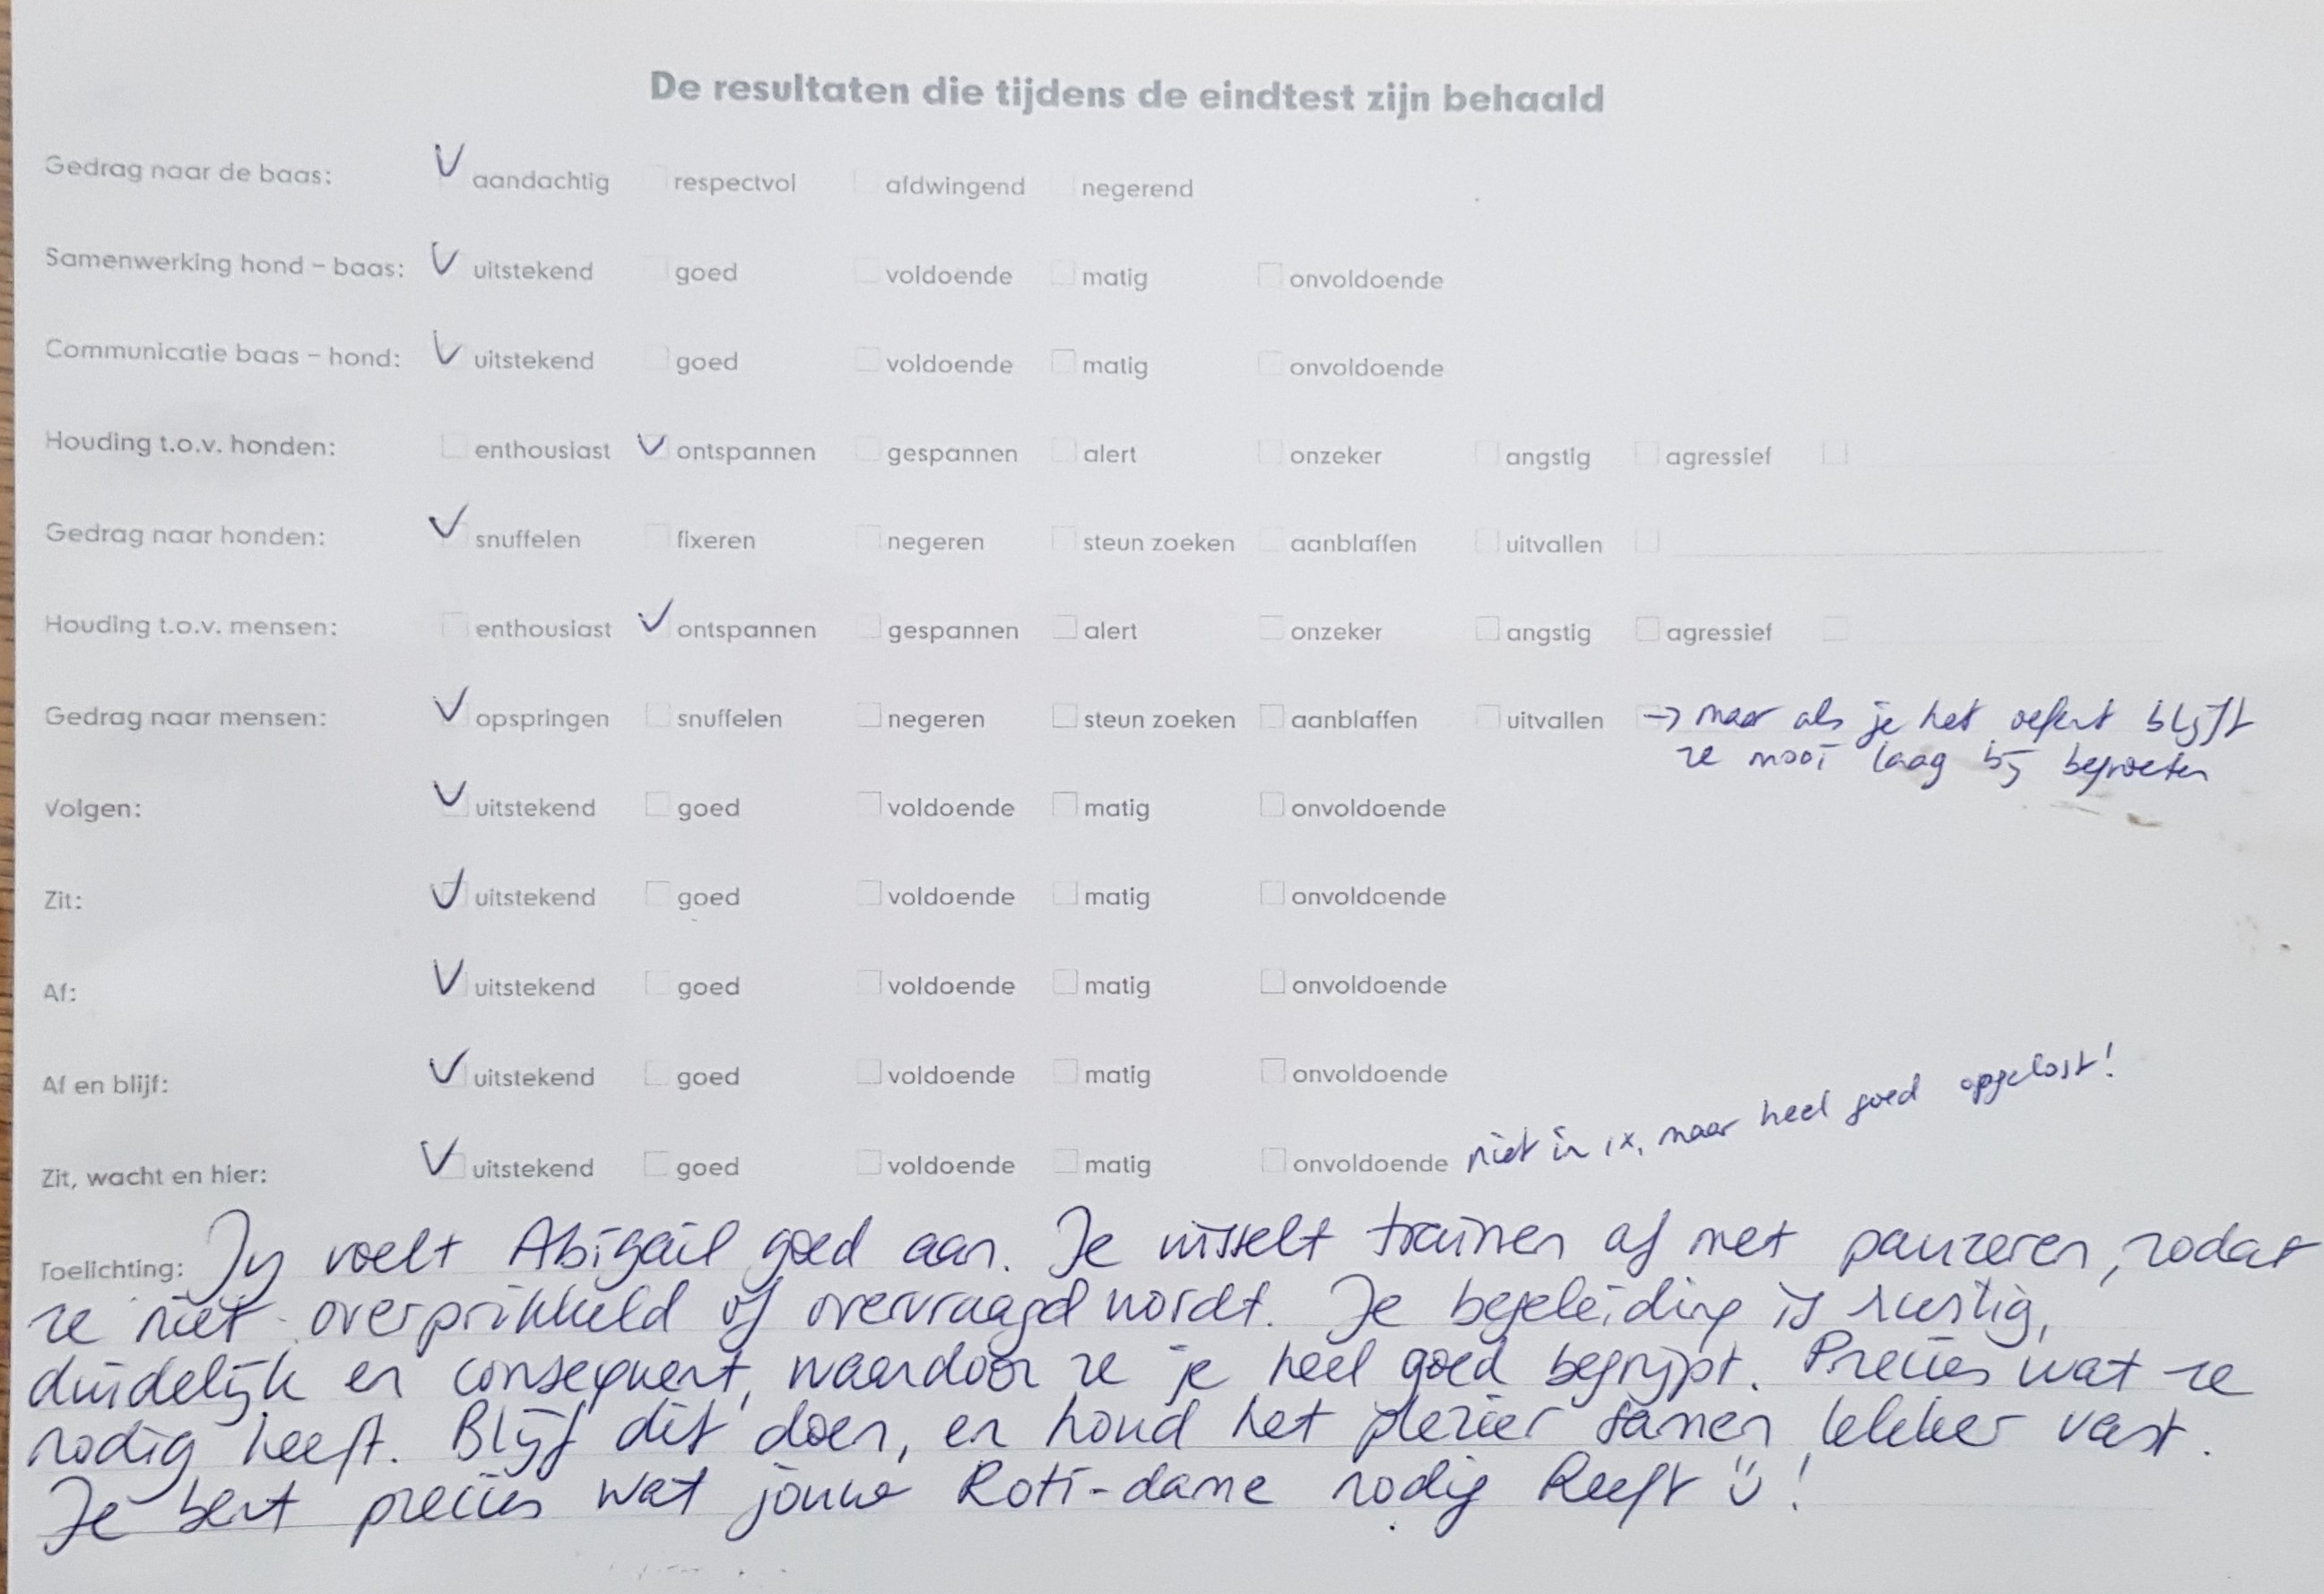 De resultaten die tijdens de eindtest zijn behaald
Gedrag naar de baas: V aandachtig respectvol afdwingend negerend
Samenwerking hond – baas: V uitstekend goed voldoende matig onvoldoende
Communicatie baas – hond: V uitstekend goed voldoende matig onvoldoende
Houding t.o.v. honden: enthousiast V ontspannen gespannen alert onzeker angstig agressief
Gedrag naar honden: V snuffelen fixeren negeren steun zoeken aanblaffen uitvallen
Houding t.o.v. mensen: enthousiast V ontspannen gespannen alert onzeker angstig agressief
Gedrag naar mensen: V opspringen snuffelen negeren steun zoeken aanblaffen uitvallen → maar als je het oefent blijft
ze mooi laag bij begroeten
Volgen: V uitstekend goed voldoende matig onvoldoende
Zit: V uitstekend goed voldoende matig onvoldoende
Af: V uitstekend goed voldoende matig onvoldoende
Af en blijf: V uitstekend goed voldoende matig onvoldoende
Zit, wacht en hier: V uitstekend goed voldoende matig onvoldoende niet in 1x, maar heel goed opgelost!
Toelichting: Jij voelt Abigaïl goed aan. Je wisselt trainen af met pauzeren, zodat
ze niet overprikkeld of overvraagd wordt. Je begeleiding is rustig,
duidelijk en consequent, waardoor ze je heel goed begrijpt. Precies wat ze
nodig heeft. Blijf dit doen, en houd het plezier samen lekker vast.
Je bent precies wat jouw Roti-dame nodig heeft ☺!